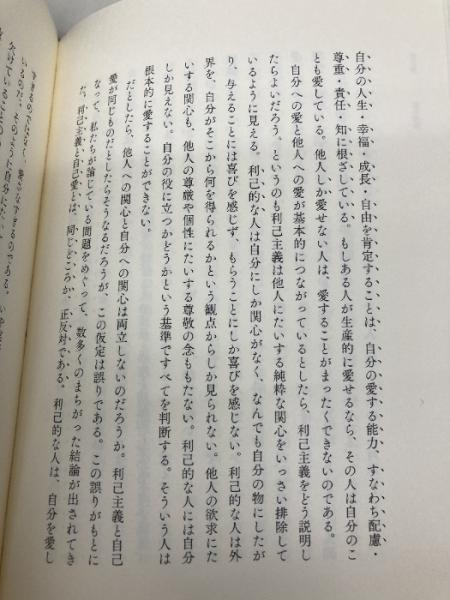 自分の人生・幸福・成長・自由を肯定することは、自分の愛する能力、すなわち配慮・
尊重・責任・知に根ざしている。もしある人が生産的に愛せるなら、その人は自分のこ
とも愛している。他人しか愛せない人は、愛することがまったくできないのである。
自分への愛と他人への愛が基本的につながっているとしたら、利己主義をどう説明し
たらよいだろう、というのも利己主義は他人にたいする純粋な関心をいっさい排除して
いるように見える。利己的な人は自分にしか関心がなく、なんでも自分の物にしたが
り、与えることには喜びを感じず、もらうことにしか喜びを感じない。利己的な人は外
界を、自分がそこから何を得られるかという観点からしか見られない。他人の欲求にた
いする関心も、他人の尊厳や個性にたいする尊敬の念ももたない。利己的な人には自分
しか見えない。自分の役に立つかどうかという基準ですべてを判断する。そういう人は
根本的に愛することができない。
だとしたら、他人への関心と自分への関心は両立しないのだろうか。利己主義と自己
愛が同じものだとしたらそうなるだろうが、この仮定は誤りである。この誤りがもとに
なって、私たちが論じている問題をめぐって、数多くのまちがった結論が出されてき
た。利己主義と自己愛とは、同じどころか、正反対である。利己的な人は、自分を愛し
すぎるのではなく、愛さなすぎるのである。